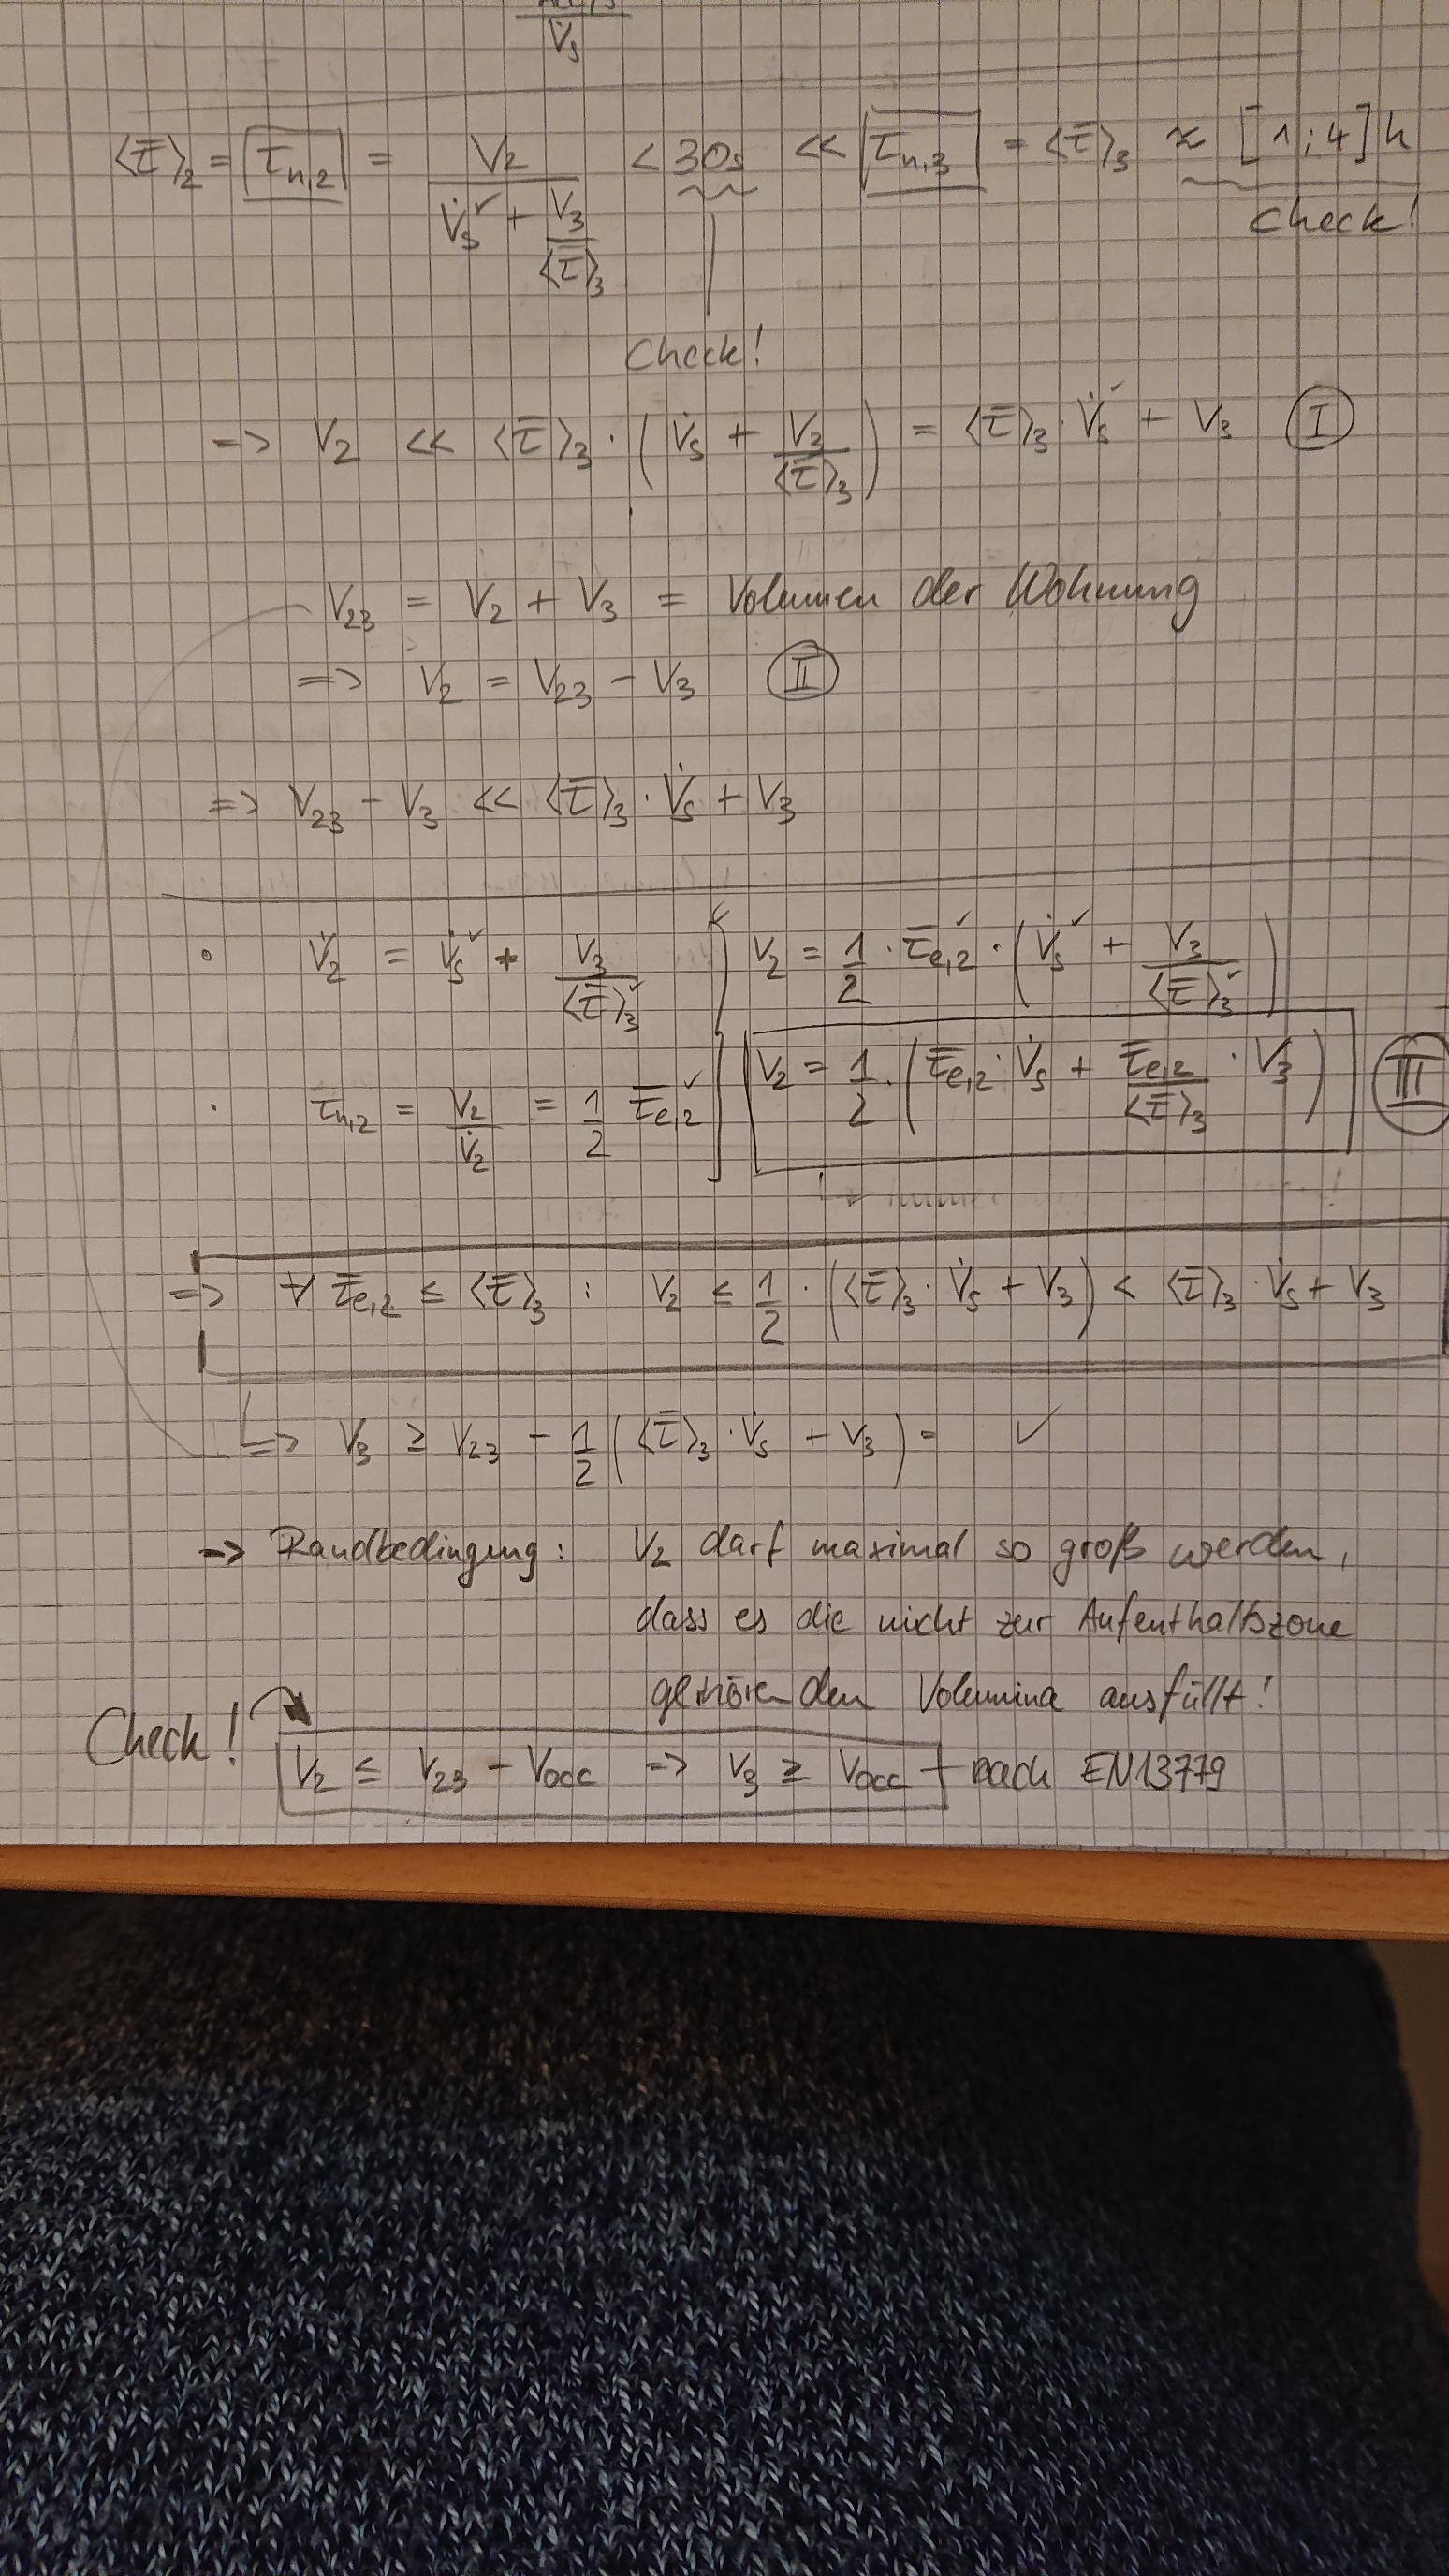 V̇ₛ
⟨τ̄⟩₂ = τ̄ₙ,₂ = V₂ / (V̇ₛ✓ + V₃/⟨τ̄⟩₃) < 30s << τ̄ₙ,₃ = ⟨τ̄⟩₃ ≈ [1;4]h
Check!
Check!
=> V₂ << ⟨τ̄⟩₃ · (V̇ₛ + V₃/⟨τ̄⟩₃) = ⟨τ̄⟩₃ · V̇ₛ✓ + V₃ (I)
V₂₃ = V₂ + V₃ = Volumen der Wohnung
=> V₂ = V₂₃ − V₃ (II)
=> V₂₃ − V₃ << ⟨τ̄⟩₃ · V̇ₛ + V₃
• V̇₂ = V̇ₛ✓ + V₃/⟨τ̄⟩₃✓
V₂ = 1/2 · τ̄ₑ,₂✓ · (V̇ₛ✓ + V₃/⟨τ̄⟩₃✓)
V₂ = 1/2 · (τ̄ₑ,₂ · V̇ₛ + τ̄ₑ,₂/⟨τ̄⟩₃ · V₃) (III)
• τ̄ₙ,₂ = V₂/V̇₂ = 1/2 τ̄ₑ,₂✓
=> ∀ τ̄ₑ,₂ ≤ ⟨τ̄⟩₃ : V₂ ≤ 1/2 · (⟨τ̄⟩₃ · V̇ₛ + V₃) < ⟨τ̄⟩₃ · V̇ₛ + V₃
=> V₃ ≥ V₂₃ − 1/2 (⟨τ̄⟩₃ · V̇ₛ + V₃) = ✓
-> Randbedingung: V₂ darf maximal so groß werden,
dass es die nicht zur Aufenthaltszone
gehörenden Volumina ausfüllt!
Check!
V₂ ≤ V₂₃ − Vocc => V₃ ≥ Vocc nach EN13779